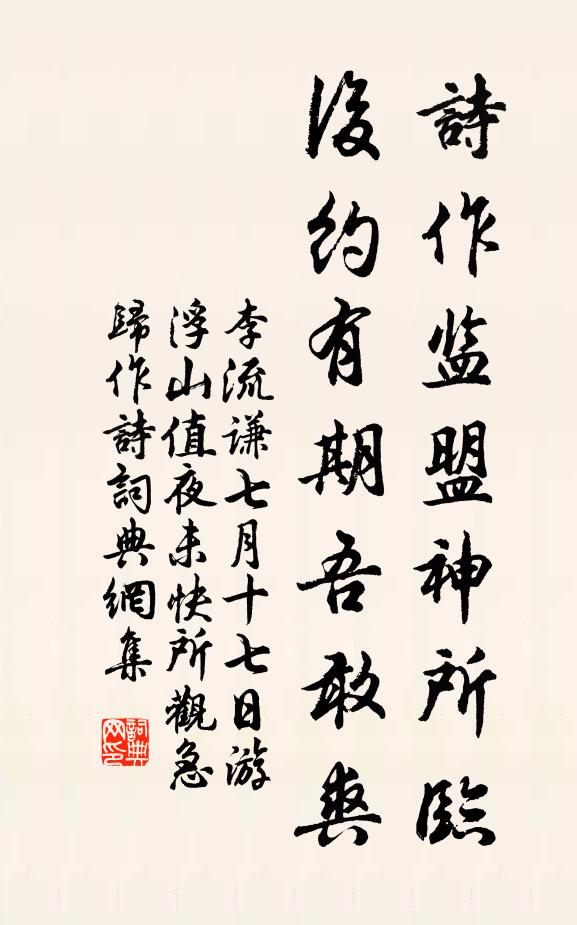 詩作监盟神所臨
後約有期吾敢爽
李流谦七月十七日游
浮山值夜未快所觀急
歸作詩詞典網集
詞典网印